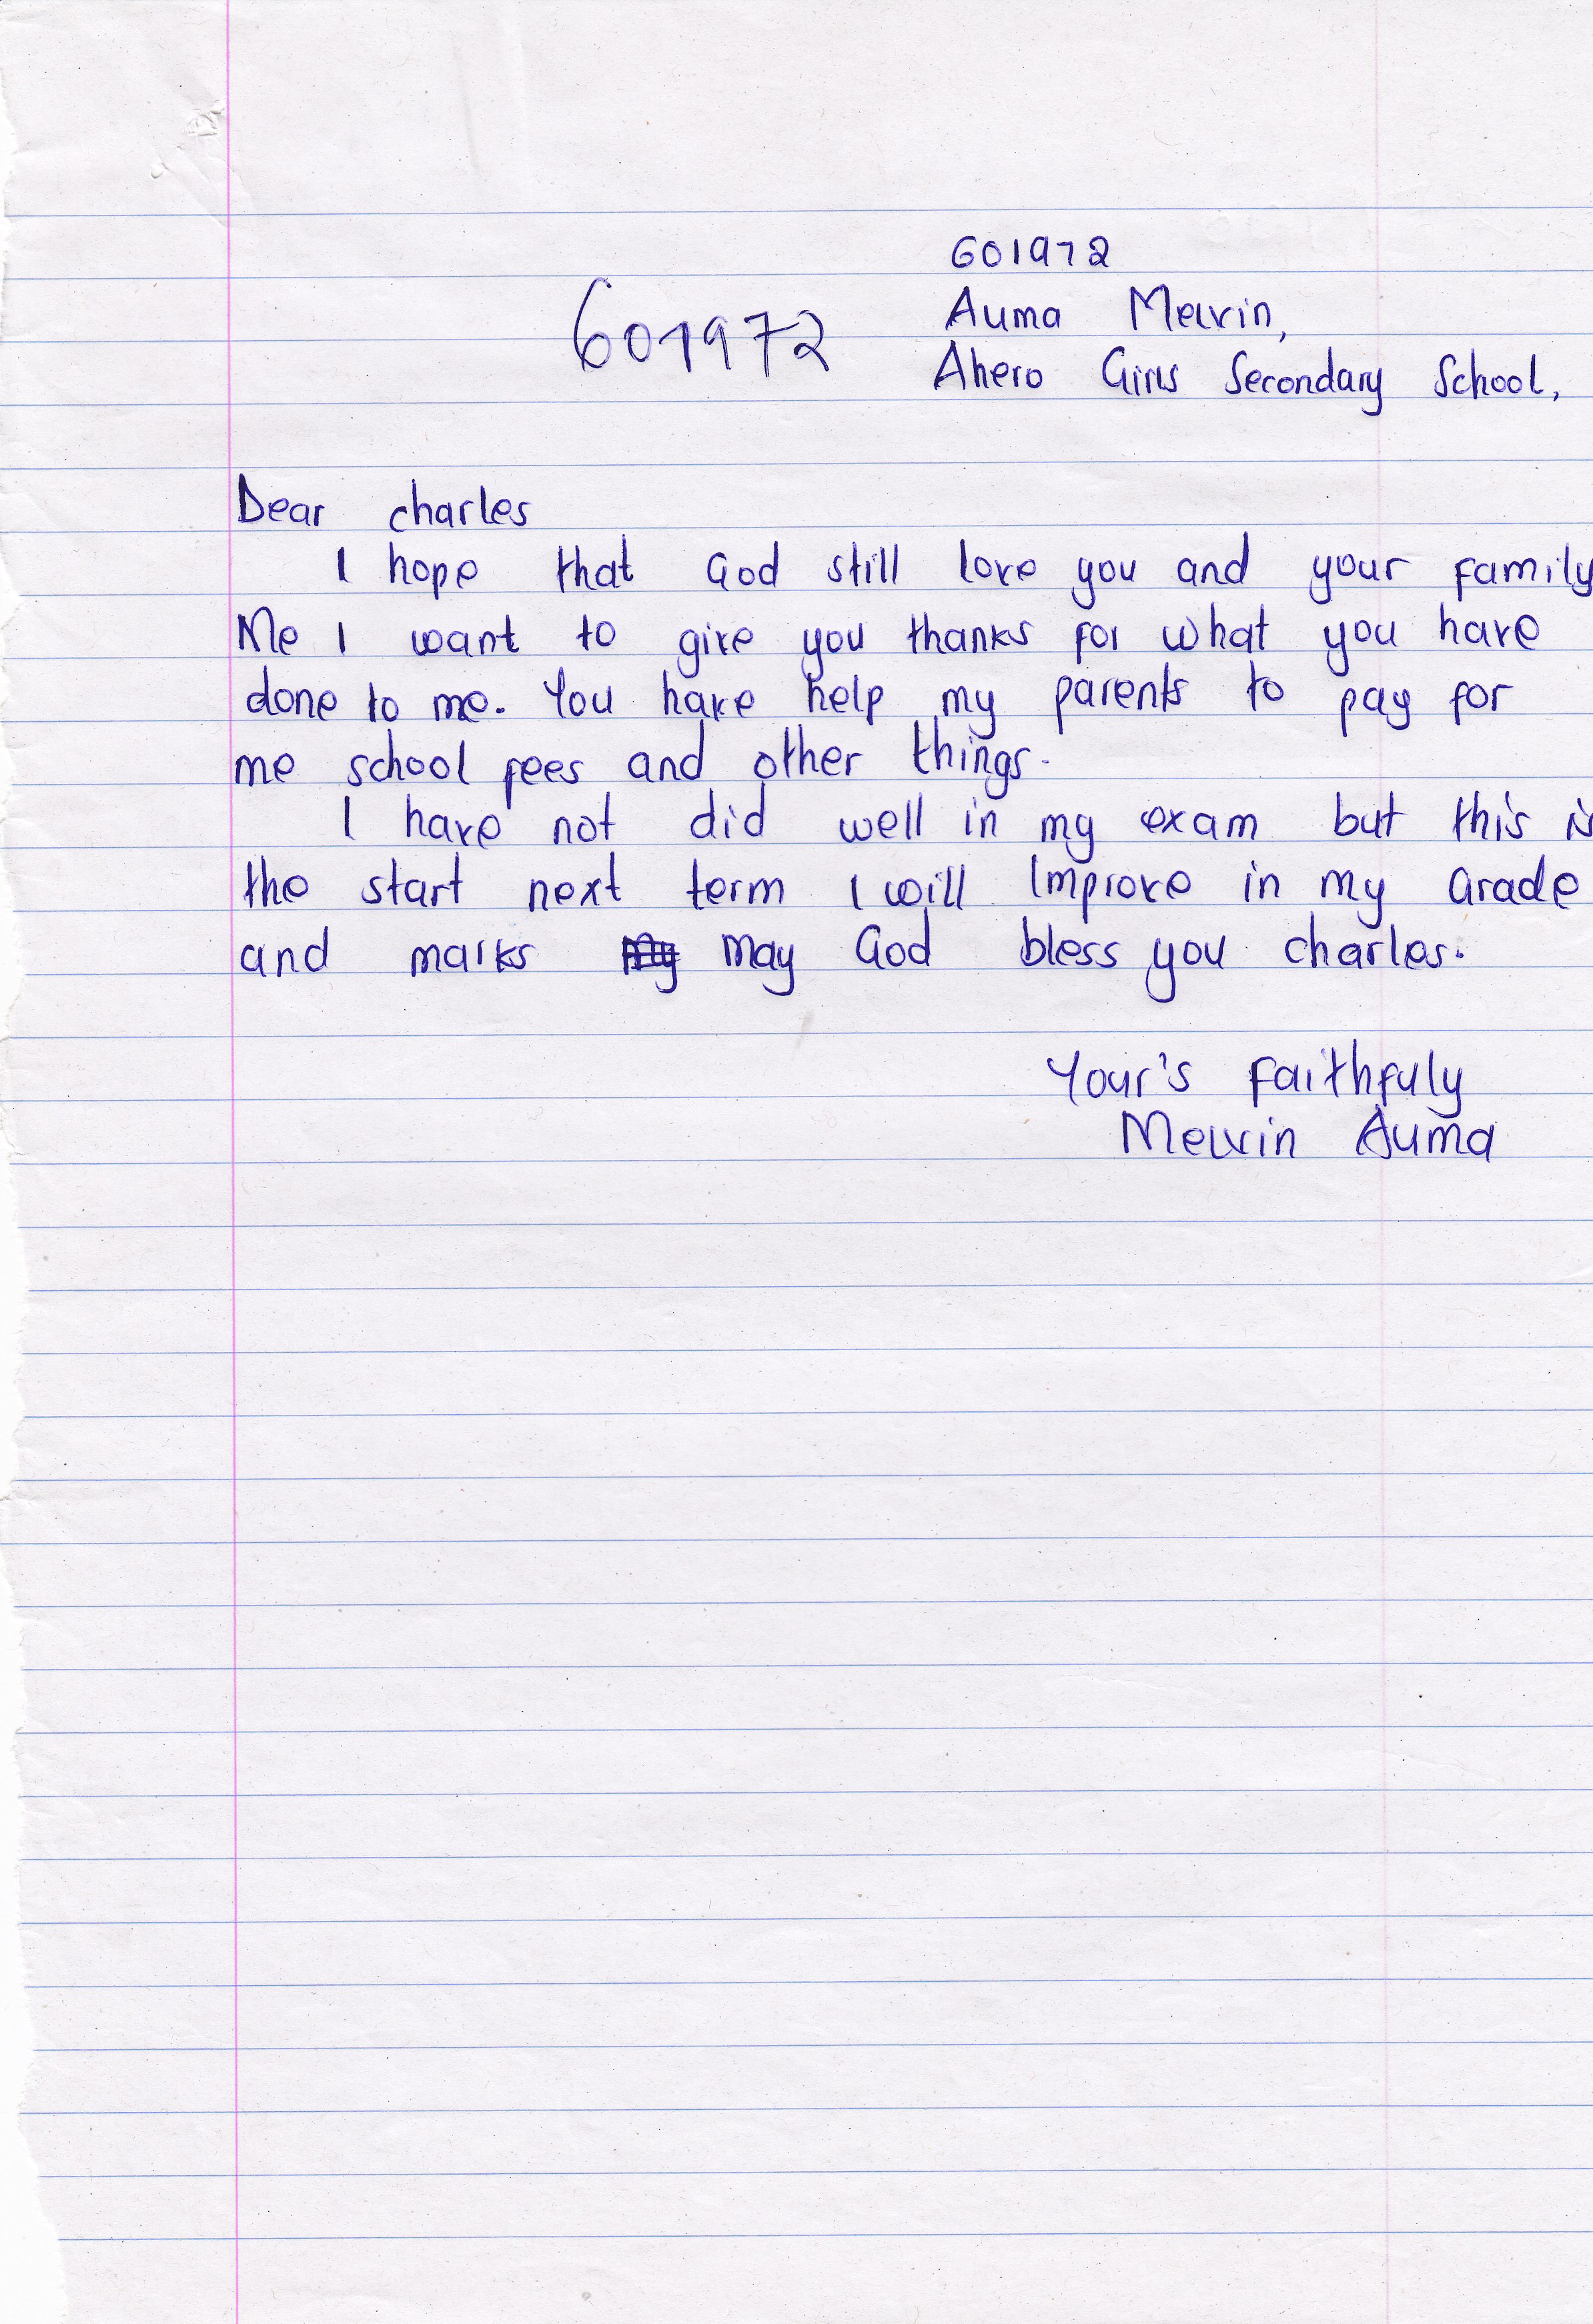 601972
601972
Auma Melvin,
Ahero Girls Secondary School,
Dear charles
I hope that God still love you and your family
Me I want to give you thanks for what you have
done to me. You have help my parents to pay for
me school fees and other things.
I have not did well in my exam but this is
the start next term I will Improve in my Grade
and marks my may God bless you charles.
Your's Faithfuly
Melvin Auma